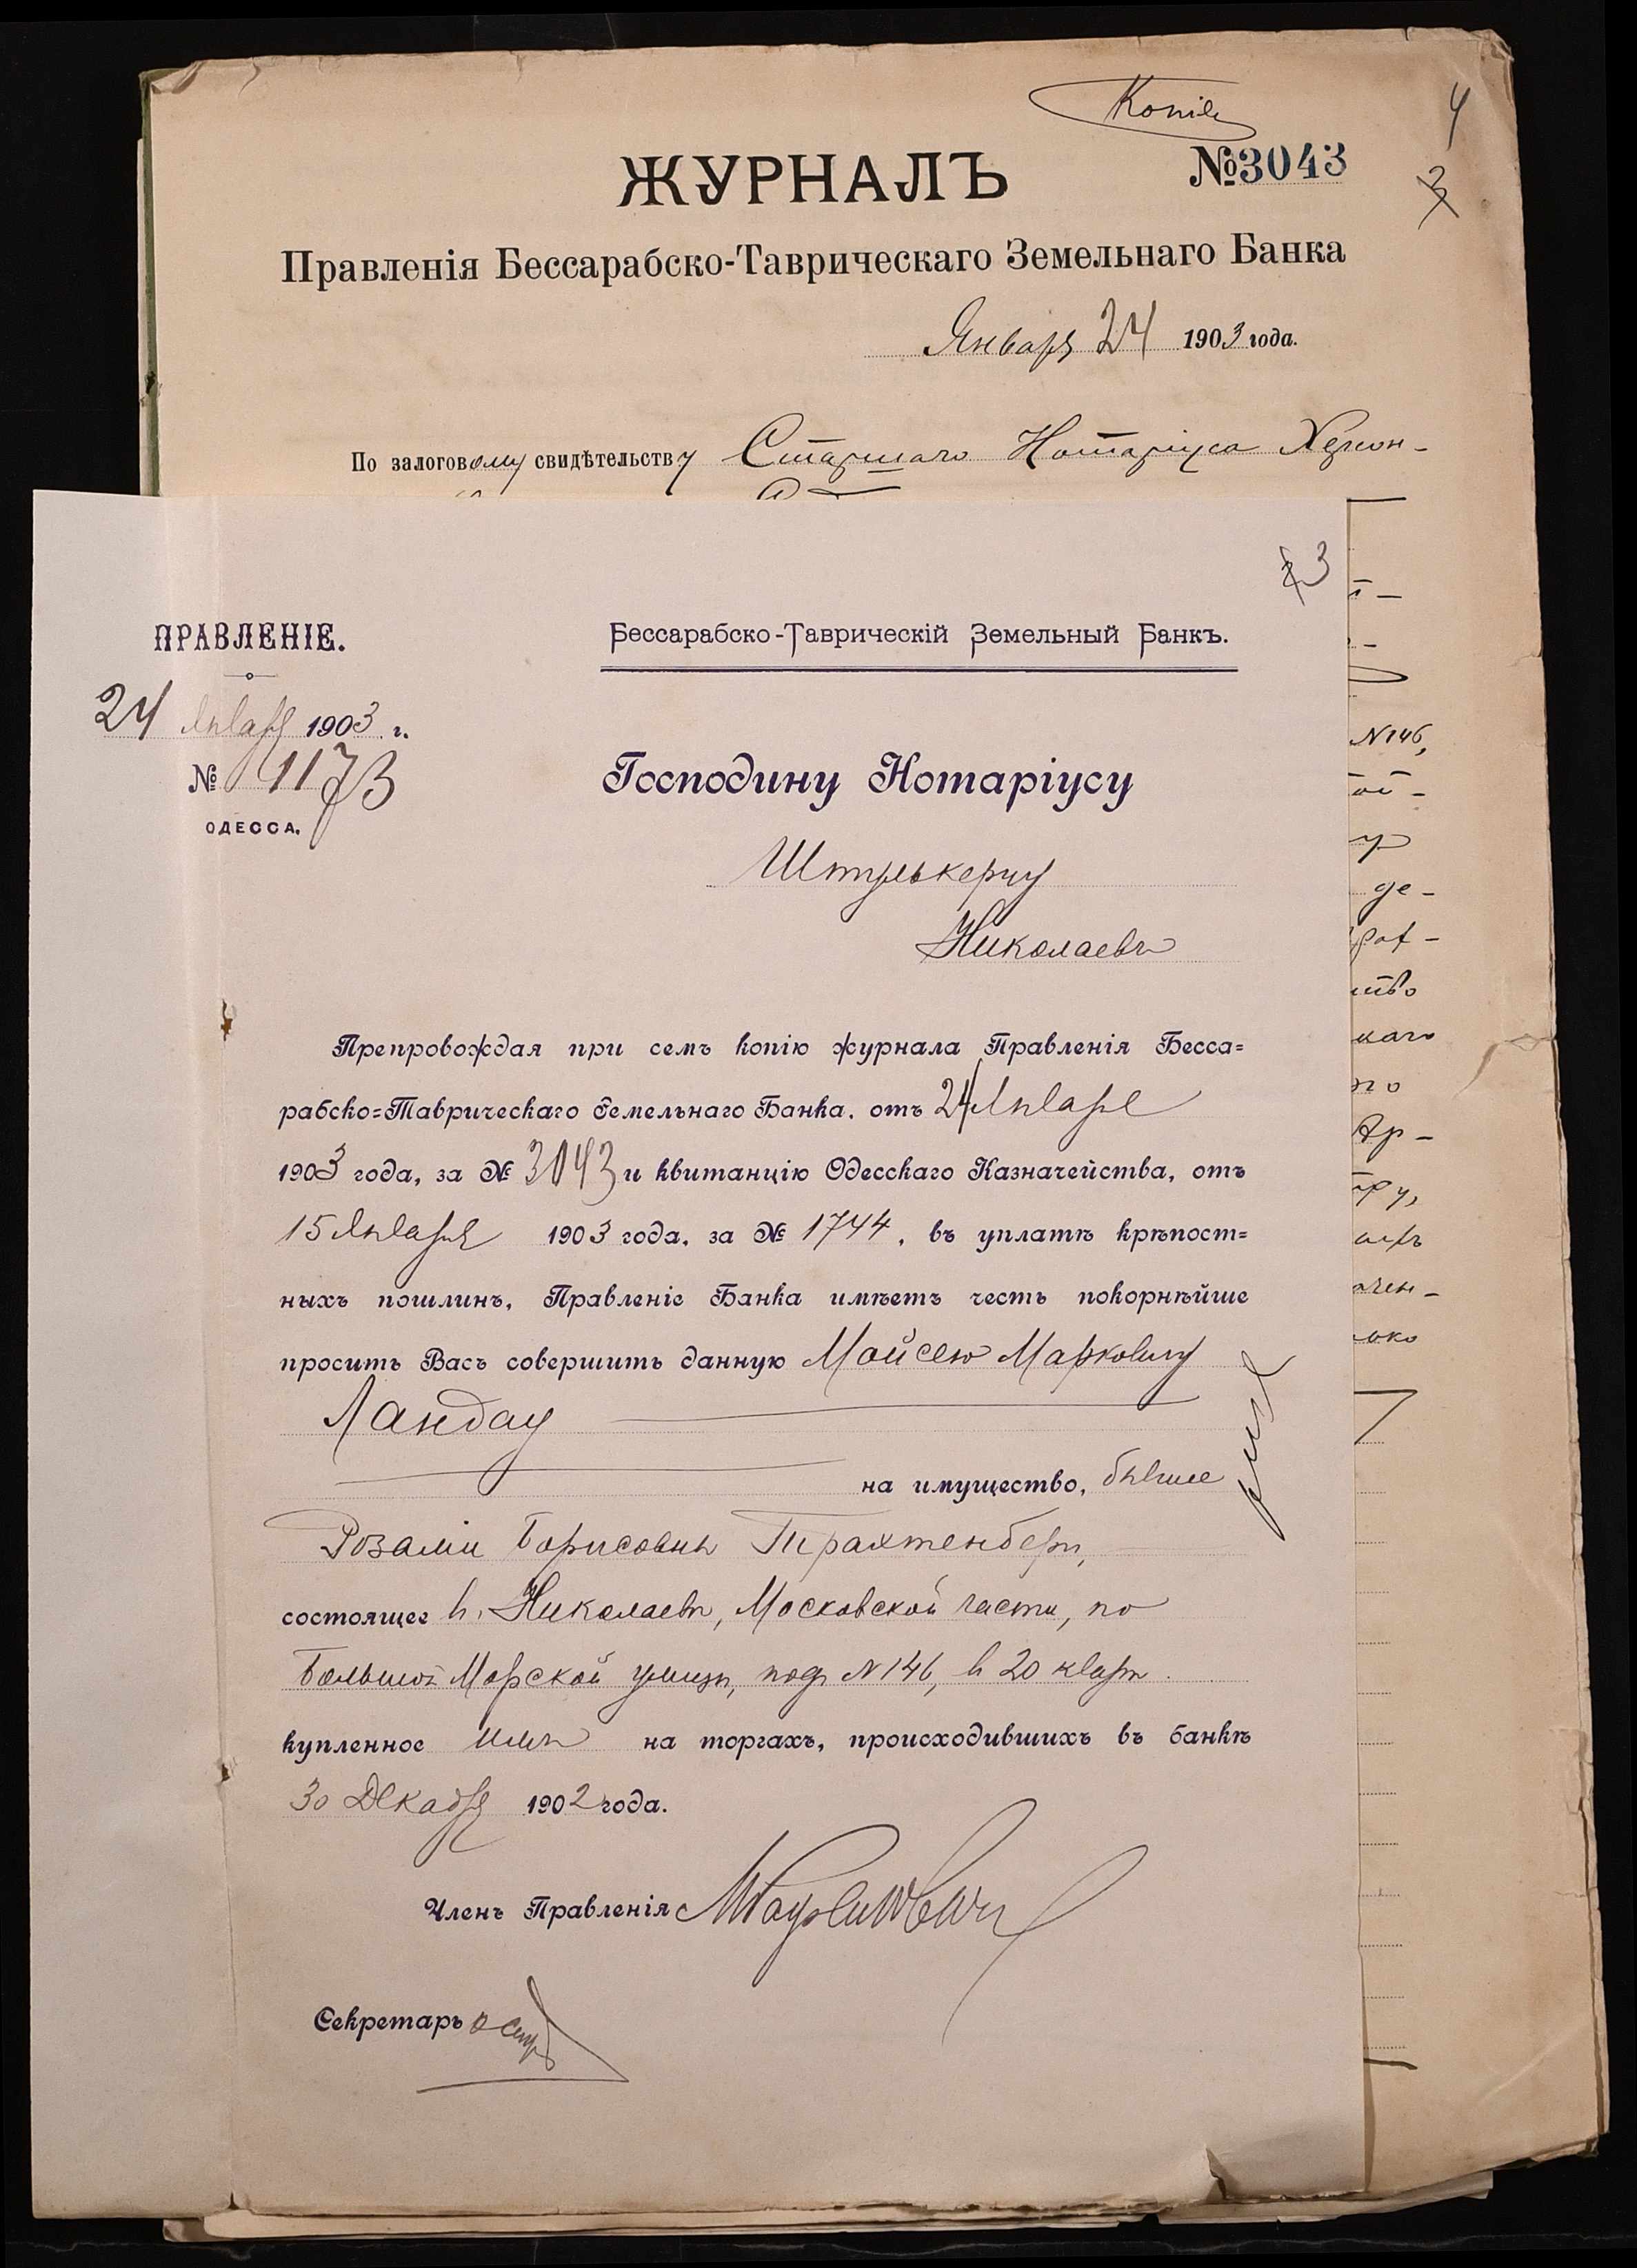 Копія
4
ЖУРНАЛЪ
№3043
3
Правленія Бессарабско-Таврическаго Земельнаго Банка
Января 24 1903 года.
По залоговому свидѣтельству Старшаго Нотаріуса Херсон-
3
ПРАВЛЕНІЕ.
Бессарабско-Таврическій Земельный Банкъ.
24 Января 1903 г.
№ 1173
ОДЕССА.
Господину Нотаріусу
Николаевъ
Препровождая при семъ копію журнала Правленія Бесса=
рабско=Таврическаго Земельнаго Банка, отъ 24 Января
1903 года, за № 3043 и квитанцію Одесскаго Казначейства, отъ
15 Января 1903 года, за № 1744, въ уплатѣ крѣпост=
ныхъ пошлинъ, Правленіе Банка имѣетъ честь покорнѣйше
проситъ Васъ совершить данную Мойсею Марковичу
Ландау
на имущество, бывшее
Розаліи Борисовны Трахтенбергъ,
состоящее въ г. Николаевѣ, Московской части, по
Большой Морской улицѣ, подъ № 146, въ 20 кварт.
купленное имъ на торгахъ, происходившихъ въ банкѣ
30 Декабря 1902 года.
Членъ Правленія
Секретарь
№ 146,
де-
каго
по